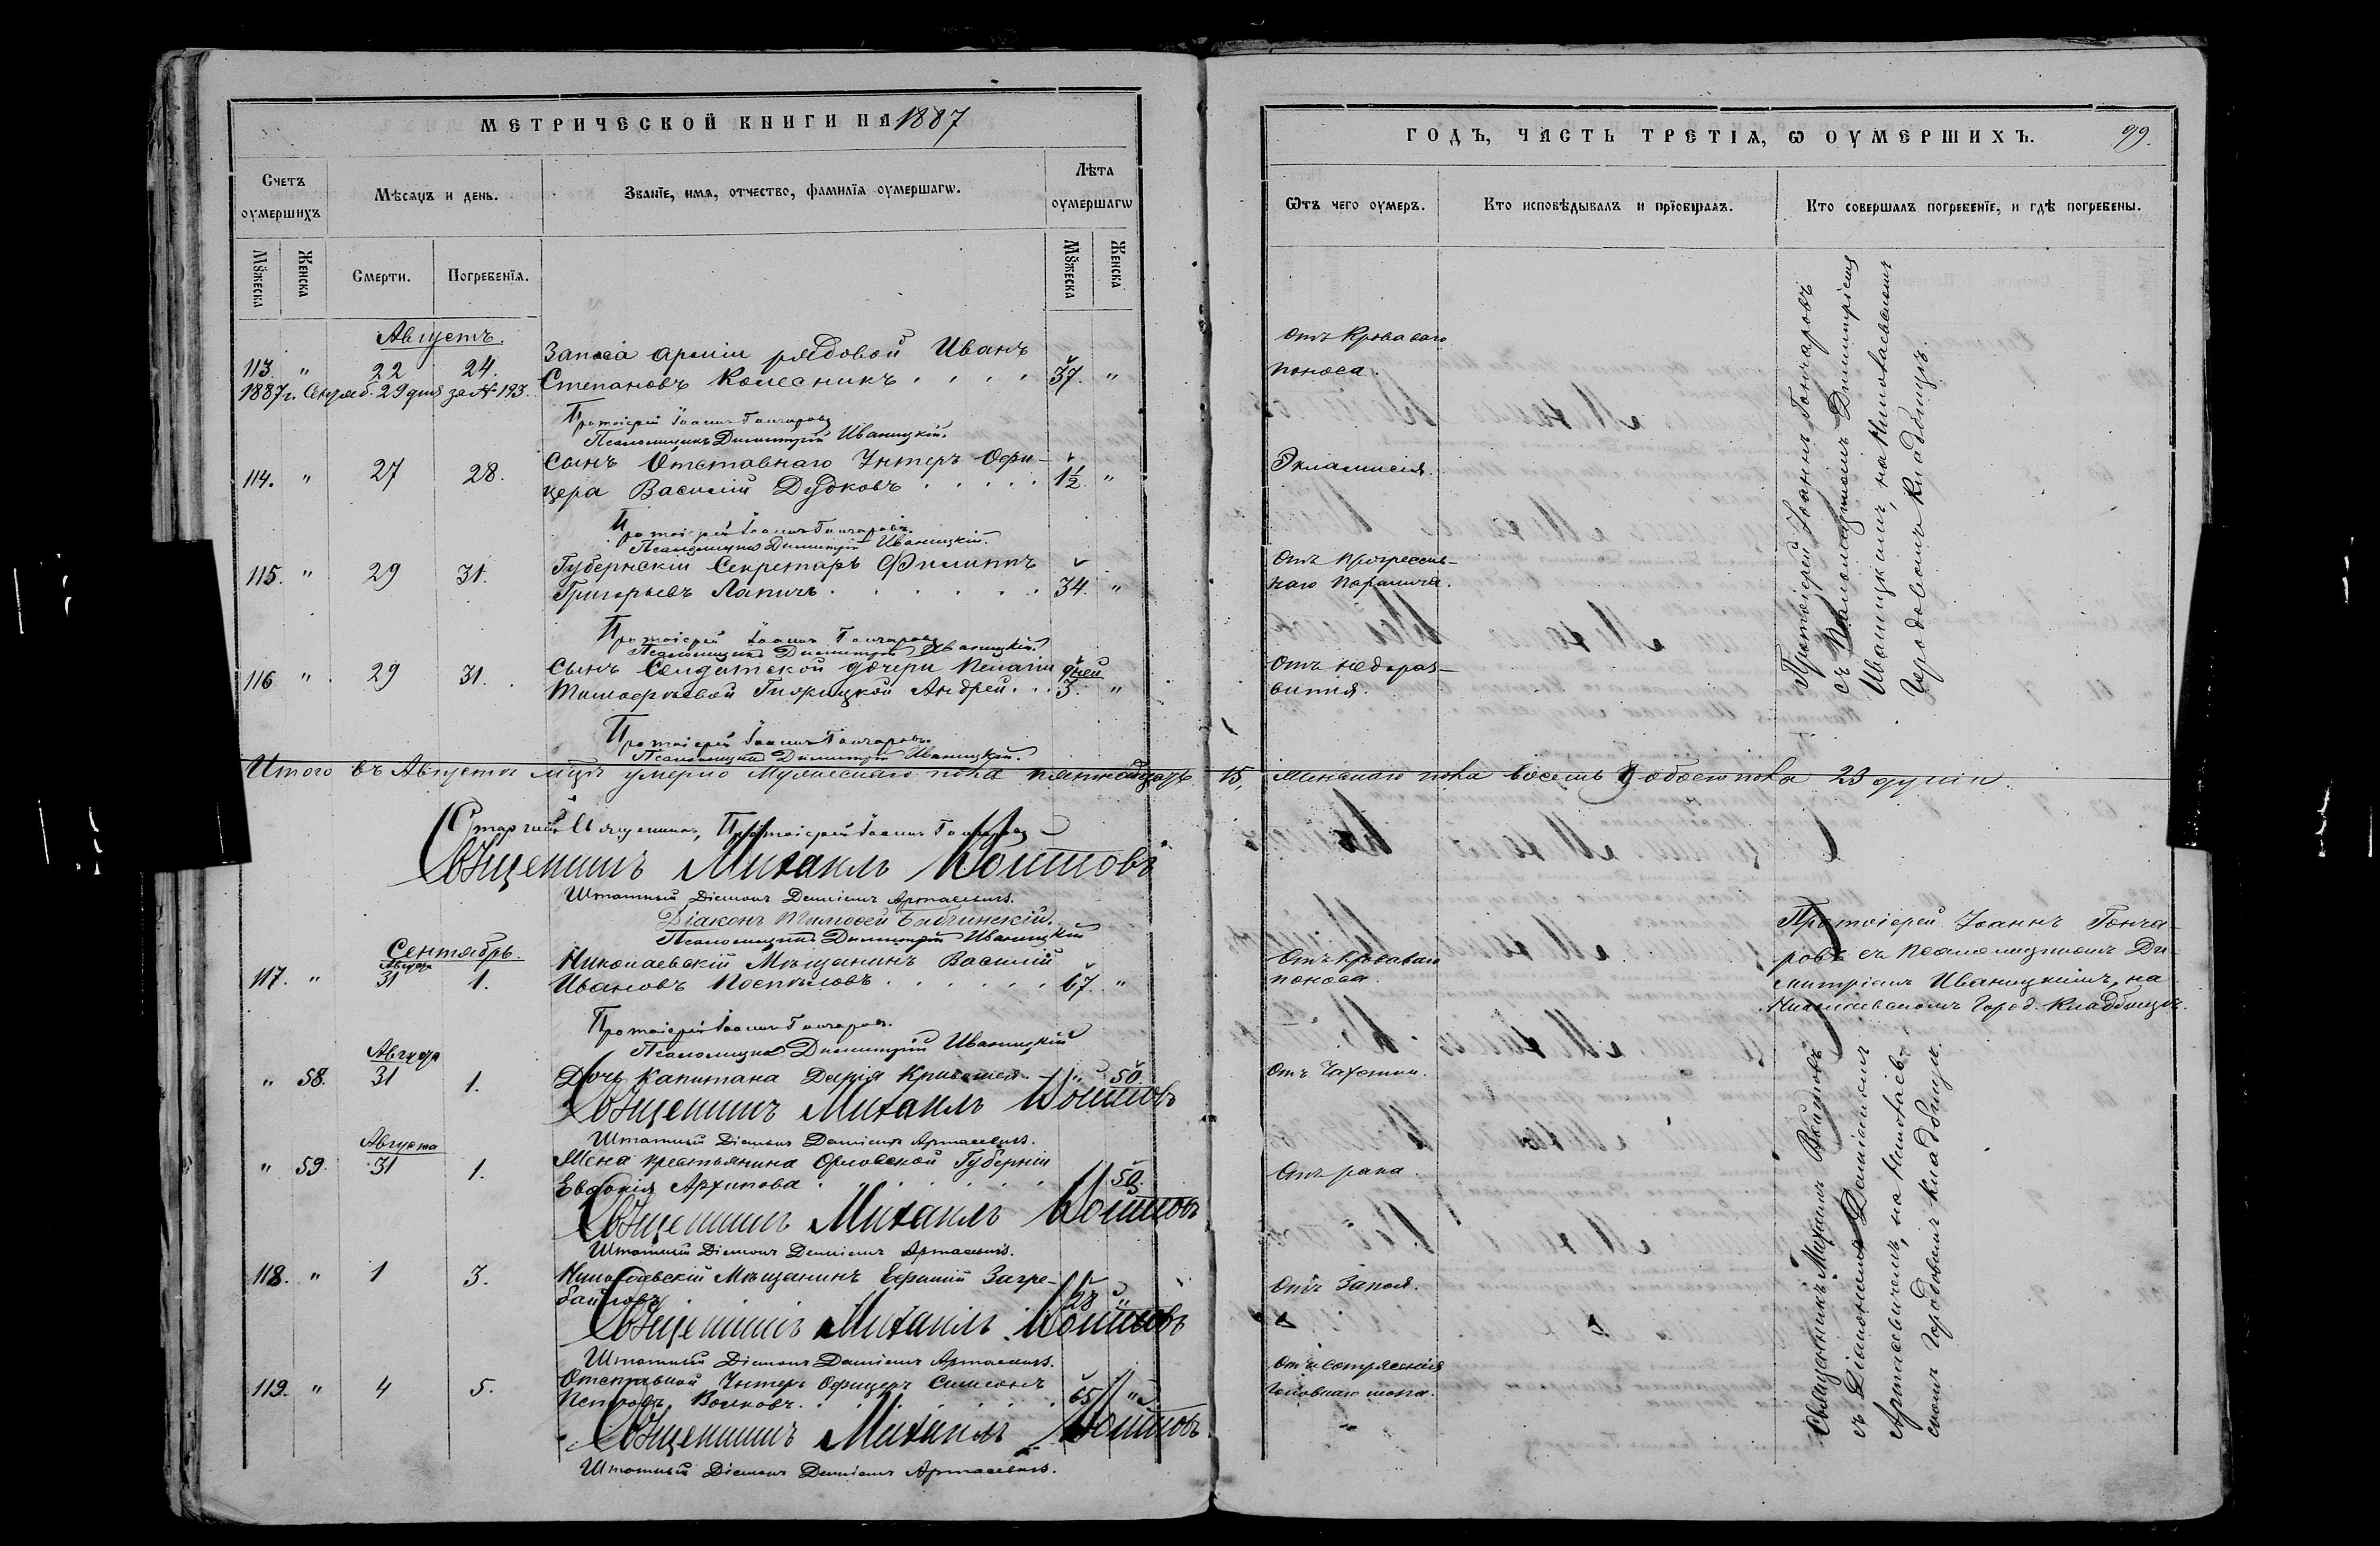 МЕТРИЧЕСКОЙ КНИГИ НА 1887
Счетъ оумершихъ
Мѣсяцъ и день.
Званїе, имя, отчество, фамилїя оумершагѡ.
Лѣта оумершагѡ
Мꙋжеска
Женска
Смерти.
Погребенїя.
Мꙋжеска
Женска
Августъ.
113. " 22 24. Запаса арміи рядовой Иванъ
Степановъ Колесникъ 37. "
1887г. Сентяб. 29 дня за № 193.
Протоіерей Іоаннъ Гончаровъ
Псаломщикъ Димитрій Иваницкій.
114. " 27 28. Сынъ Отставнаго Унтеръ Офи-
цера Василій Дудковъ 1½ "
Протоіерей Іоаннъ Гончаровъ.
Псаломщикъ Димитрій Иваницкій.
115. " 29 31. Губернскій Секретарь Филиппъ
Григорьевъ Лапичъ 34. "
Протоіерей Іоаннъ Гончаровъ
Псаломщикъ Димитрій Иваницкій.
116 " 29 31. Сынъ Солдатской дочери Пелагіи дней
Тимофеевой Андрей 3. "
Протоіерей Іоаннъ Гончаровъ.
Псаломщикъ Димитрій Иваницкій.
Итого въ Августѣ мцѣ умерло Мужескаго пола пятнадцать
Старшій Священникъ, Протоіерей Іоаннъ Гончаровъ
Священникъ Михаилъ Воитовъ
Штатный Діаконъ Даміанъ Артасевичъ.
Діаконъ Тимофей Бабчинскій.
Псаломщикъ Димитрій Иваницкій
Сентябрь.
Августа
117. " 31 1. Николаевскій Мѣщанинъ Василій
Ивановъ Поспѣловъ 67. "
Протоіерей Іоаннъ Гончаровъ.
Псаломщикъ Димитрій Иваницкій
Августа
" 58. 31 1. Дочь Капитана Дарія " 50.
Священникъ Михаилъ Воитовъ
Штатный Діаконъ Даміанъ Артасевичъ.
Августа
" 59. 31 1. Жена крестьянина Орловской Губерніи
Евдокія Архипова 50.
Священникъ Михаилъ Воитовъ
Штатный Діаконъ Даміанъ Артасевичъ.
118. " 1 3. Николаевскій Мѣщанинъ Ефимій Загре-
28 "
Священникъ Михаилъ Воитовъ
Штатный Діаконъ Даміанъ Артасевичъ.
119. " 4 5. Отставной Унтеръ Офицеръ Симеонъ
Петровъ Волковъ. 65 "
Священникъ Михаилъ Воитовъ
Штатный Діаконъ Даміанъ Артасевичъ.
ГОДЪ, ЧАСТЬ ТРЕТІѦ, Ѡ ОУМЕРШИХЪ. 99.
Ѿтъ чего оумеръ.
Кто исповѣдывалъ и прїобщалъ.
Кто совершалъ погребенїе, и гдѣ погребены.
Отъ Кроваваго
поноса.
Эклампсія.
Отъ прогрессив-
наго паралича.
Отъ недораз-
витія.
Протоіерей Іоаннъ Гончаровъ
съ Псаломщикомъ Димитріемъ
Иваницкимъ, на Николаевскомъ
Городовомъ Кладбищѣ.
15, женскаго пола восемь 8 обоего пола 23 души.
Отъ Кроваваго
поноса.
Протоіерей Іоаннъ Гонча-
ровъ съ Псаломщикомъ Ди-
митріемъ Иваницкимъ, на
Николаевскомъ Город. Кладбищѣ.
Отъ Чахотки.
Отъ рака.
Отъ Запоя.
Отъ сотрясенія
головнаго мозга.
Священникъ Михаилъ Воитовъ
съ Діакономъ Даміаномъ
Артасевичемъ, на Николаев-
скомъ Городовомъ Кладбищѣ.